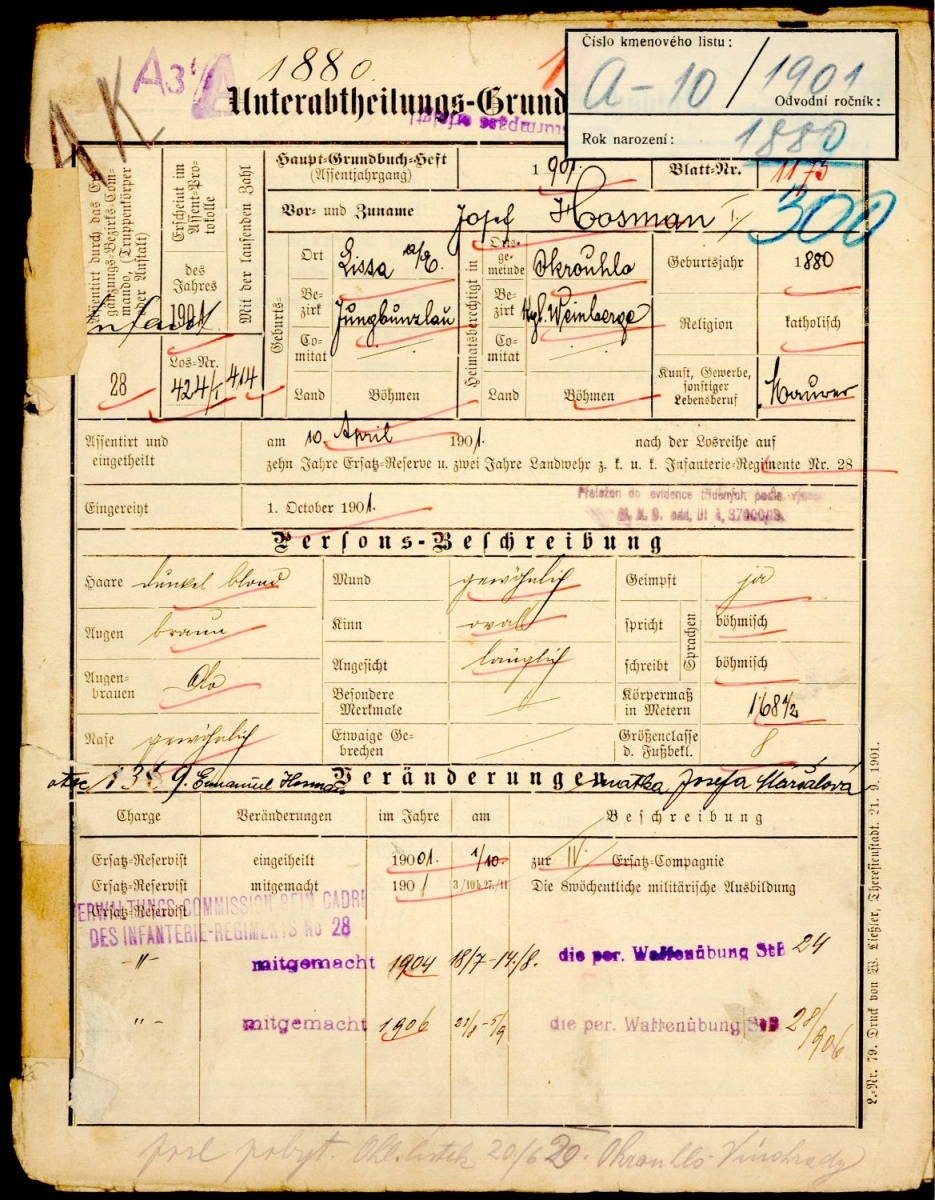 1880.
A3
AK
Číslo kmenového listu:
A-10/1901
Odvodní ročník:
Rok narození: 1880
Unterabtheilungs-Grund
Haupt-Grundbuch-Heft
(Assentjahrgang)
1 901.
Blatt-Nr. 1175
300
Erscheint im
Assent-Pro-
tokolle
des
Jahres
1901
Mit der laufenden Zahl
414
28
Los-Nr.
424/I
Vor- und Zuname Josef Hosman I/
Geburts-
Ort Lissa a/E.
Be-
zirk Jungbunzlau
Co-
mitat
Land Böhmen
Heimatsberechtigt in
Orts-
ge-
meinde Okrouhlo
Be-
zirk Kgl. Weinberge
Co-
mitat
Land Böhmen
Geburtsjahr 1880
Religion katholisch
Kunst, Gewerbe,
sonstiger
Lebensberuf Maurer
Assentirt und
eingetheilt
am 10. April 1901. nach der Losreihe auf
zehn Jahre Ersatz-Reserve u. zwei Jahre Landwehr z. k. u. k. Infanterie-Regimente Nr. 28
Eingereiht 1. October 1901.
Přeložen do evidence tříděných podle
Persons-Beschreibung
Haare dunkel blond
Augen braun
Augen-
brauen Do
Nase gewöhnlich
Mund gewöhnlich
Kinn oval
Angesicht länglich
Besondere
Merkmale
Etwaige Ge-
brechen
Geimpft ja
Sprachen
spricht böhmisch
schreibt böhmisch
Körpermaß
in Metern 1·68 1/2
Größenclasse
d. Fußbekl. 8
otec Emanuel Hosman Veränderungen matka Josefa Maršalová
Charge Veränderungen im Jahre am Beschreibung
Ersatz-Reservist eingetheilt 1901. 1/10. zur IV. Ersatz-Compagnie
Ersatz-Reservist mitgemacht 1901 3/10 b. 27./11 Die 8wöchentliche militärische Ausbildung
Ersatz-Reservist
VERWALTUNGS-COMMISSION BEIM CADRE
DES INFANTERIE-REGIMENTS No 28
-"- mitgemacht 1904 18/7-14./8. die per. Waffenübung StB 24
"- mitgemacht 1906 die per. Waffenübung StB 28/906
L.-Nr. 79. Druck von W. Ließler, Theresienstadt. 21. 9. 1901.
posl. pobyt. Okrouhlo Vinohrady